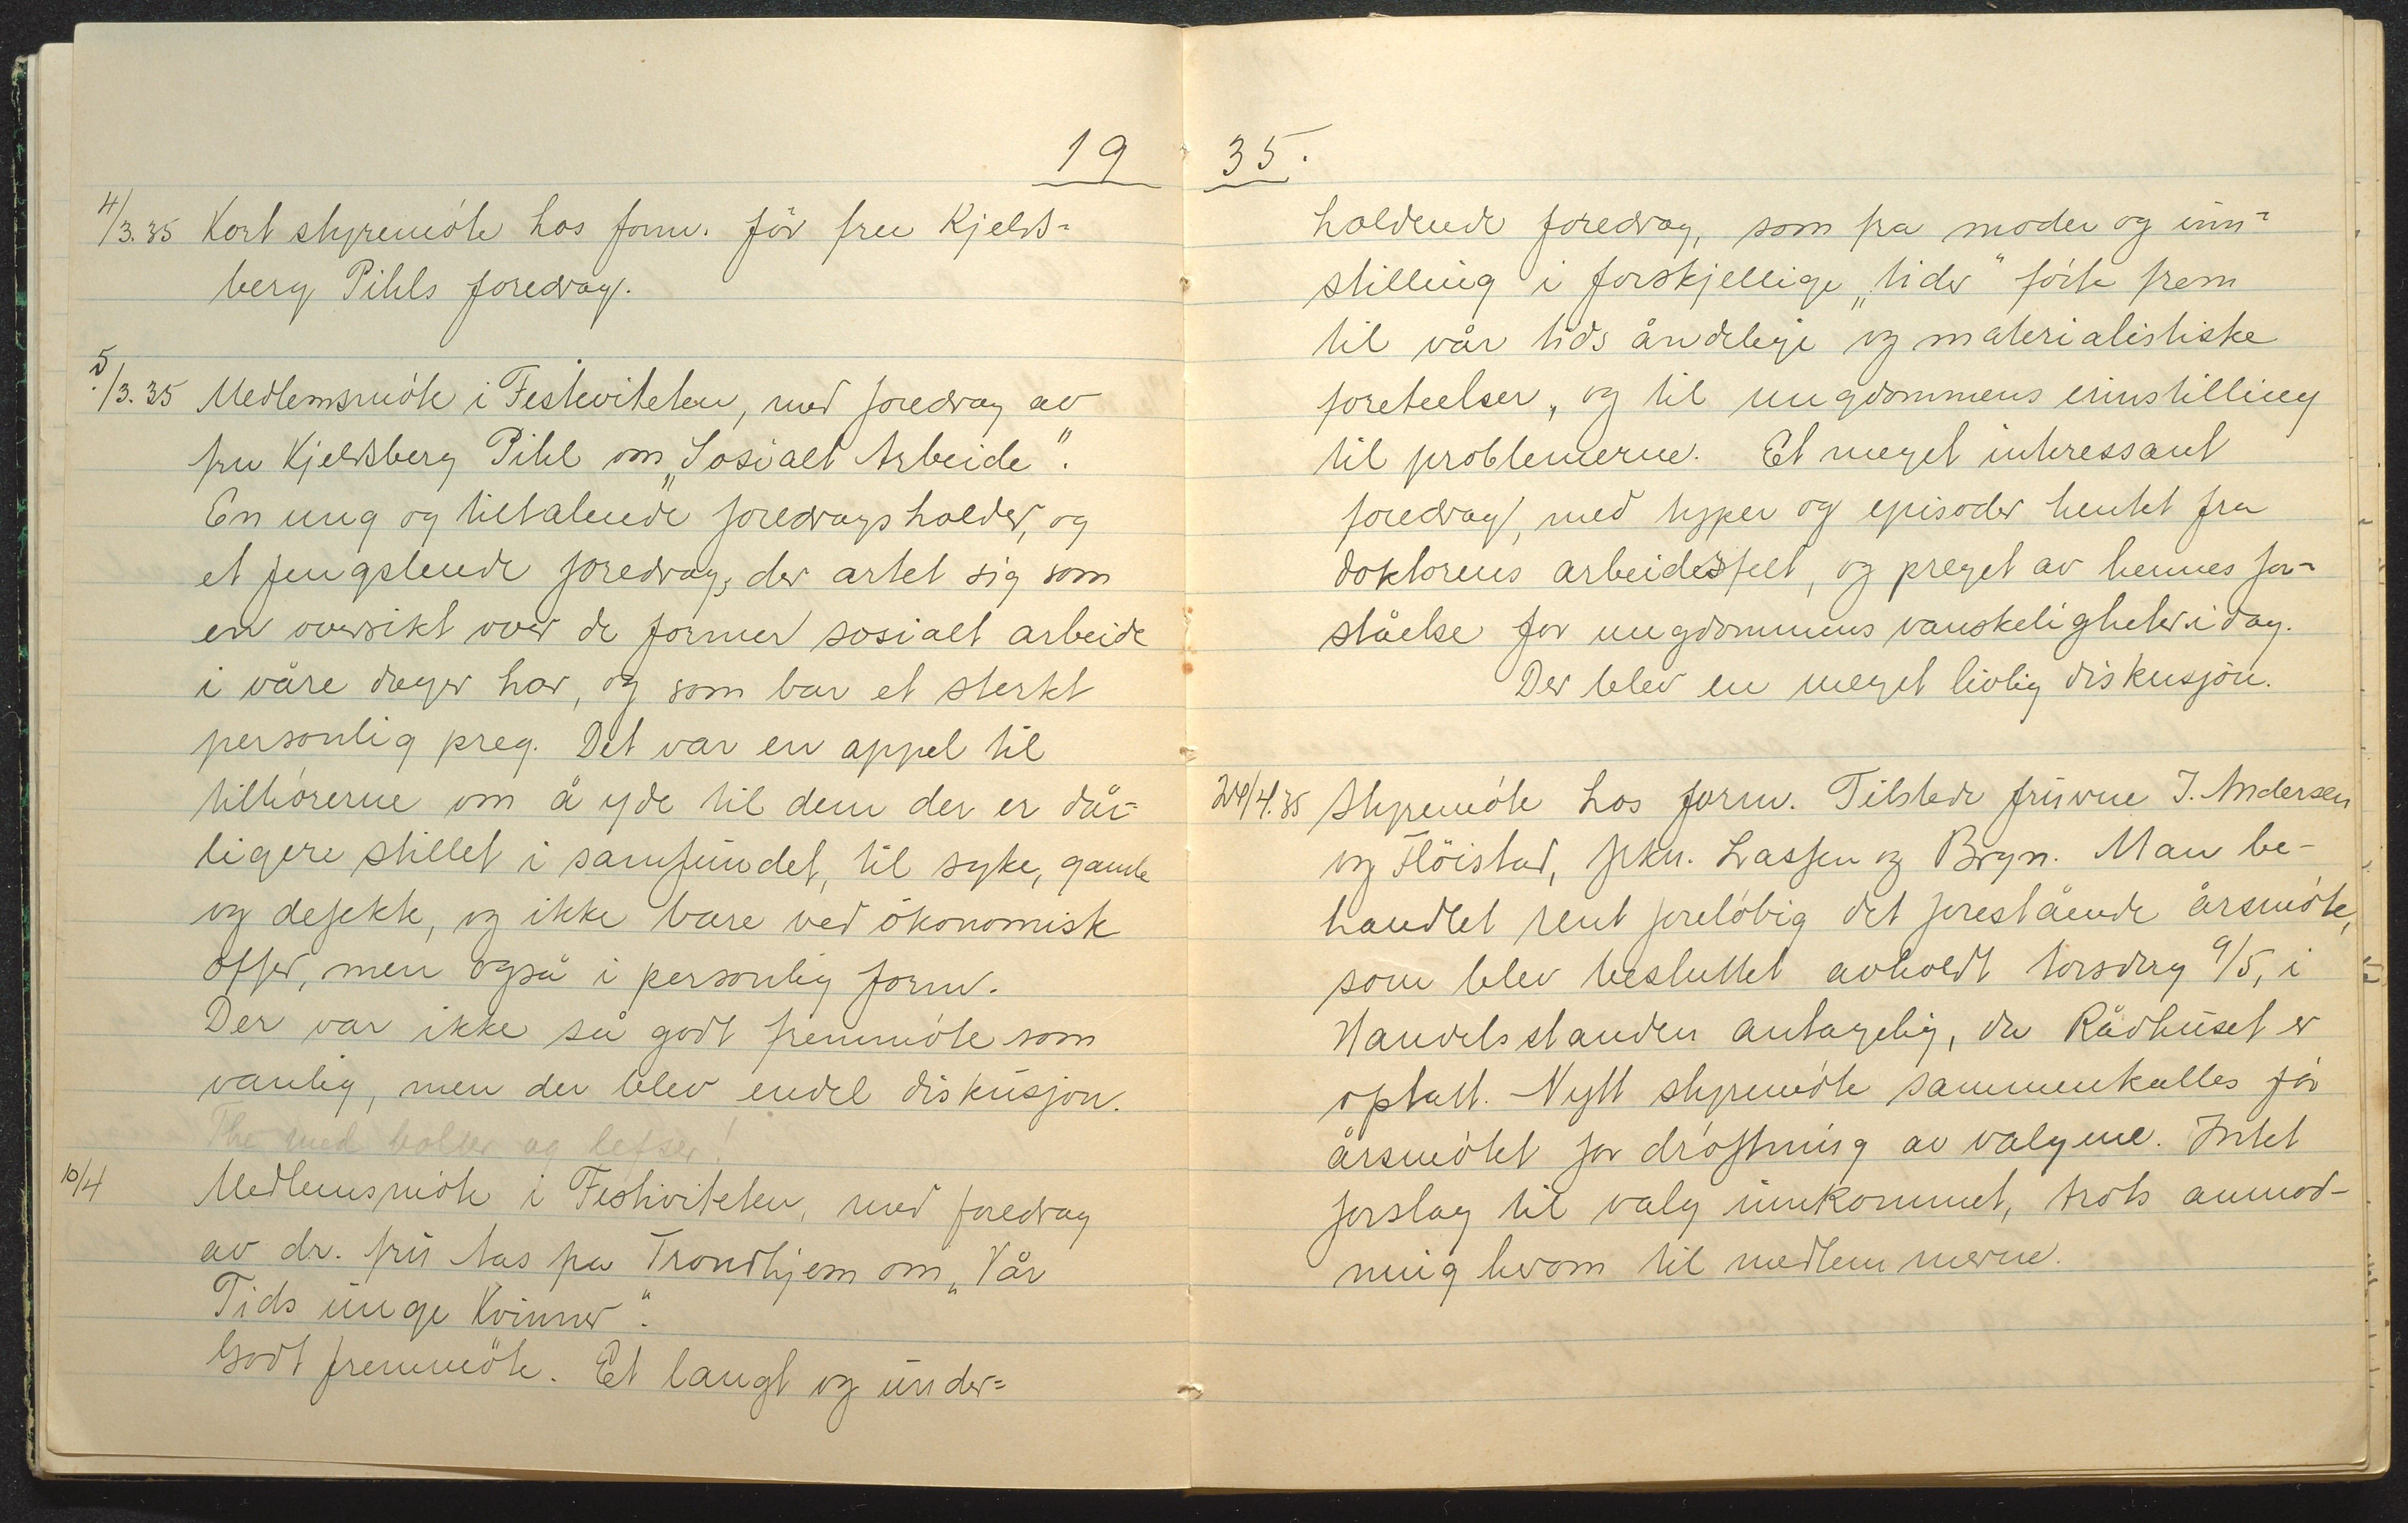 19 35.
4/3.35 Kort styremöte hos form. för fru Kjelds=
berg Pihls foredrag.
5/3.35 Medlemsmöte i Festiviteten, med foredrag av
fru Kjeldsberg Pihl om „Sosialt Arbeide".
En ung og tiltalende foredragsholder, og
et fengslende foredrag, der artet sig som
en oversikt over de former sosialt arbeide
i våre dager har, og som bar et sterkt
personlig preg. Det var en appel til
tilhörerne om å yde til dem der er dår=
ligere stillet i samfundet, til syke, gamle
og defekte, og ikke bare ved ökonomisk
offer, men også i personlig form.
Der var ikke så godt fremmöte som
vanlig, men der blev endel diskusjon.
The med boller og lefser!
10/4 Medlemsmöte i Festiviteten, med foredrag
av dr. fru Aas fra Trondhjem om „Vår
Tids unge Kvinner".
Godt fremmöte. Et langt og under=
holdende foredrag, som fra moder og inn=
stilling i forskjellige „tider" förte frem
til vår tids åndelige og materialistiske
foreteelser, og til ungdommens innstilling
til problemerne. Et meget interessant
foredrag, med typer og episoder hentet fra
doktorens arbeidsfelt, og preget av hennes for-
ståelse for ungdommens vanskeligheter i dag.
Der blev en meget livlig diskusjon.
24/4.35 Styremöte hos form. Tilstede fruvne J. Andersen
og Flöistad, frkn. Lassen og Bryn. Man be-
handlet rent forelöbig det forestående årsmöte,
som blev besluttet avholdt torsdag 9/5, i
Handelsstanden antagelig, da Rådhuset er
optatt. Nytt styremöte sammenkalles för
årsmötet for dröftning av valgene. Intet
forslag til valg innkommet, trots anmod-
ning herom til medlemmerne.